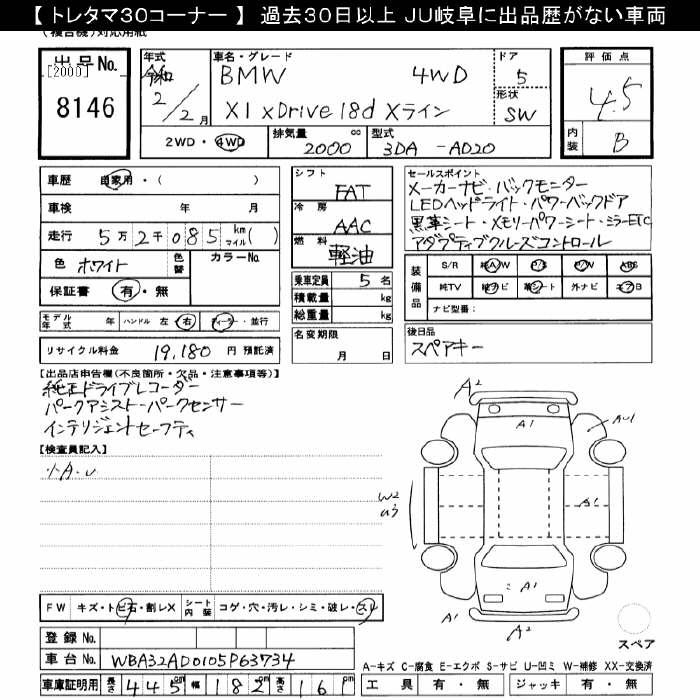 【 トレタマ30コーナー 】 過去30日以上 JU岐阜に出品歴がない車両
(複合機)対応用紙
出品No.
[2000]
8146
年式
令和
2/2月
車名・グレード
BMW 4WD
X1 xDrive 18d Xライン
ドア
5
形状
SW
評価点
4.5
内装
B
2WD・4WD
排気量
cc
2000
型式
3DA-AD20
車歴 自家用・( )
車検 年 月
走行 5万2千085 kmマイル( )
色 ホワイト 色替 カラーNo.
保証書 有・無
シフト
FAT
冷房
AAC
燃料
軽油
セールスポイント
メーカーナビ・バックモニター
LEDヘッドライト・パワーバックドア
黒革シート・メモリパワーシート・ミラーETC
アダプティブクルーズコントロール
乗車定員 5 名
積載量 kg
総重量 kg
名変期限
月 日
装備品
S/R 純AW P/S P/W ABS
純TV 純ナビ 革シート 外ナビ エアB
ナビ型番:
モデル年式 年 ハンドル 左 右 ディーラー・並行
リサイクル料金 19,180 円 預託済
後日品
スペアキー
【出品店申告欄(不良箇所・欠品・注意事項等)】
純正ドライブレコーダー
パークアシスト・パークセンサー
インテリジェントセーフティ
【検査員記入】
小A・U
A2
A1
AU1
W2
U3
A1
A1
A1
A2
スペア
FW キズ・トビ石・割レX シート内装 コゲ・穴・汚レ・シミ・破レ・スレ
登録No.
車台No. WBA32AD0105P63734
車庫証明用 長さ 445 cm 幅 182 cm 高さ 161 cm
A-キズ C-腐食 E-エクボ S-サビ U-凹ミ W-補修 XX-交換済
工具 有・無 ジャッキ 有・無